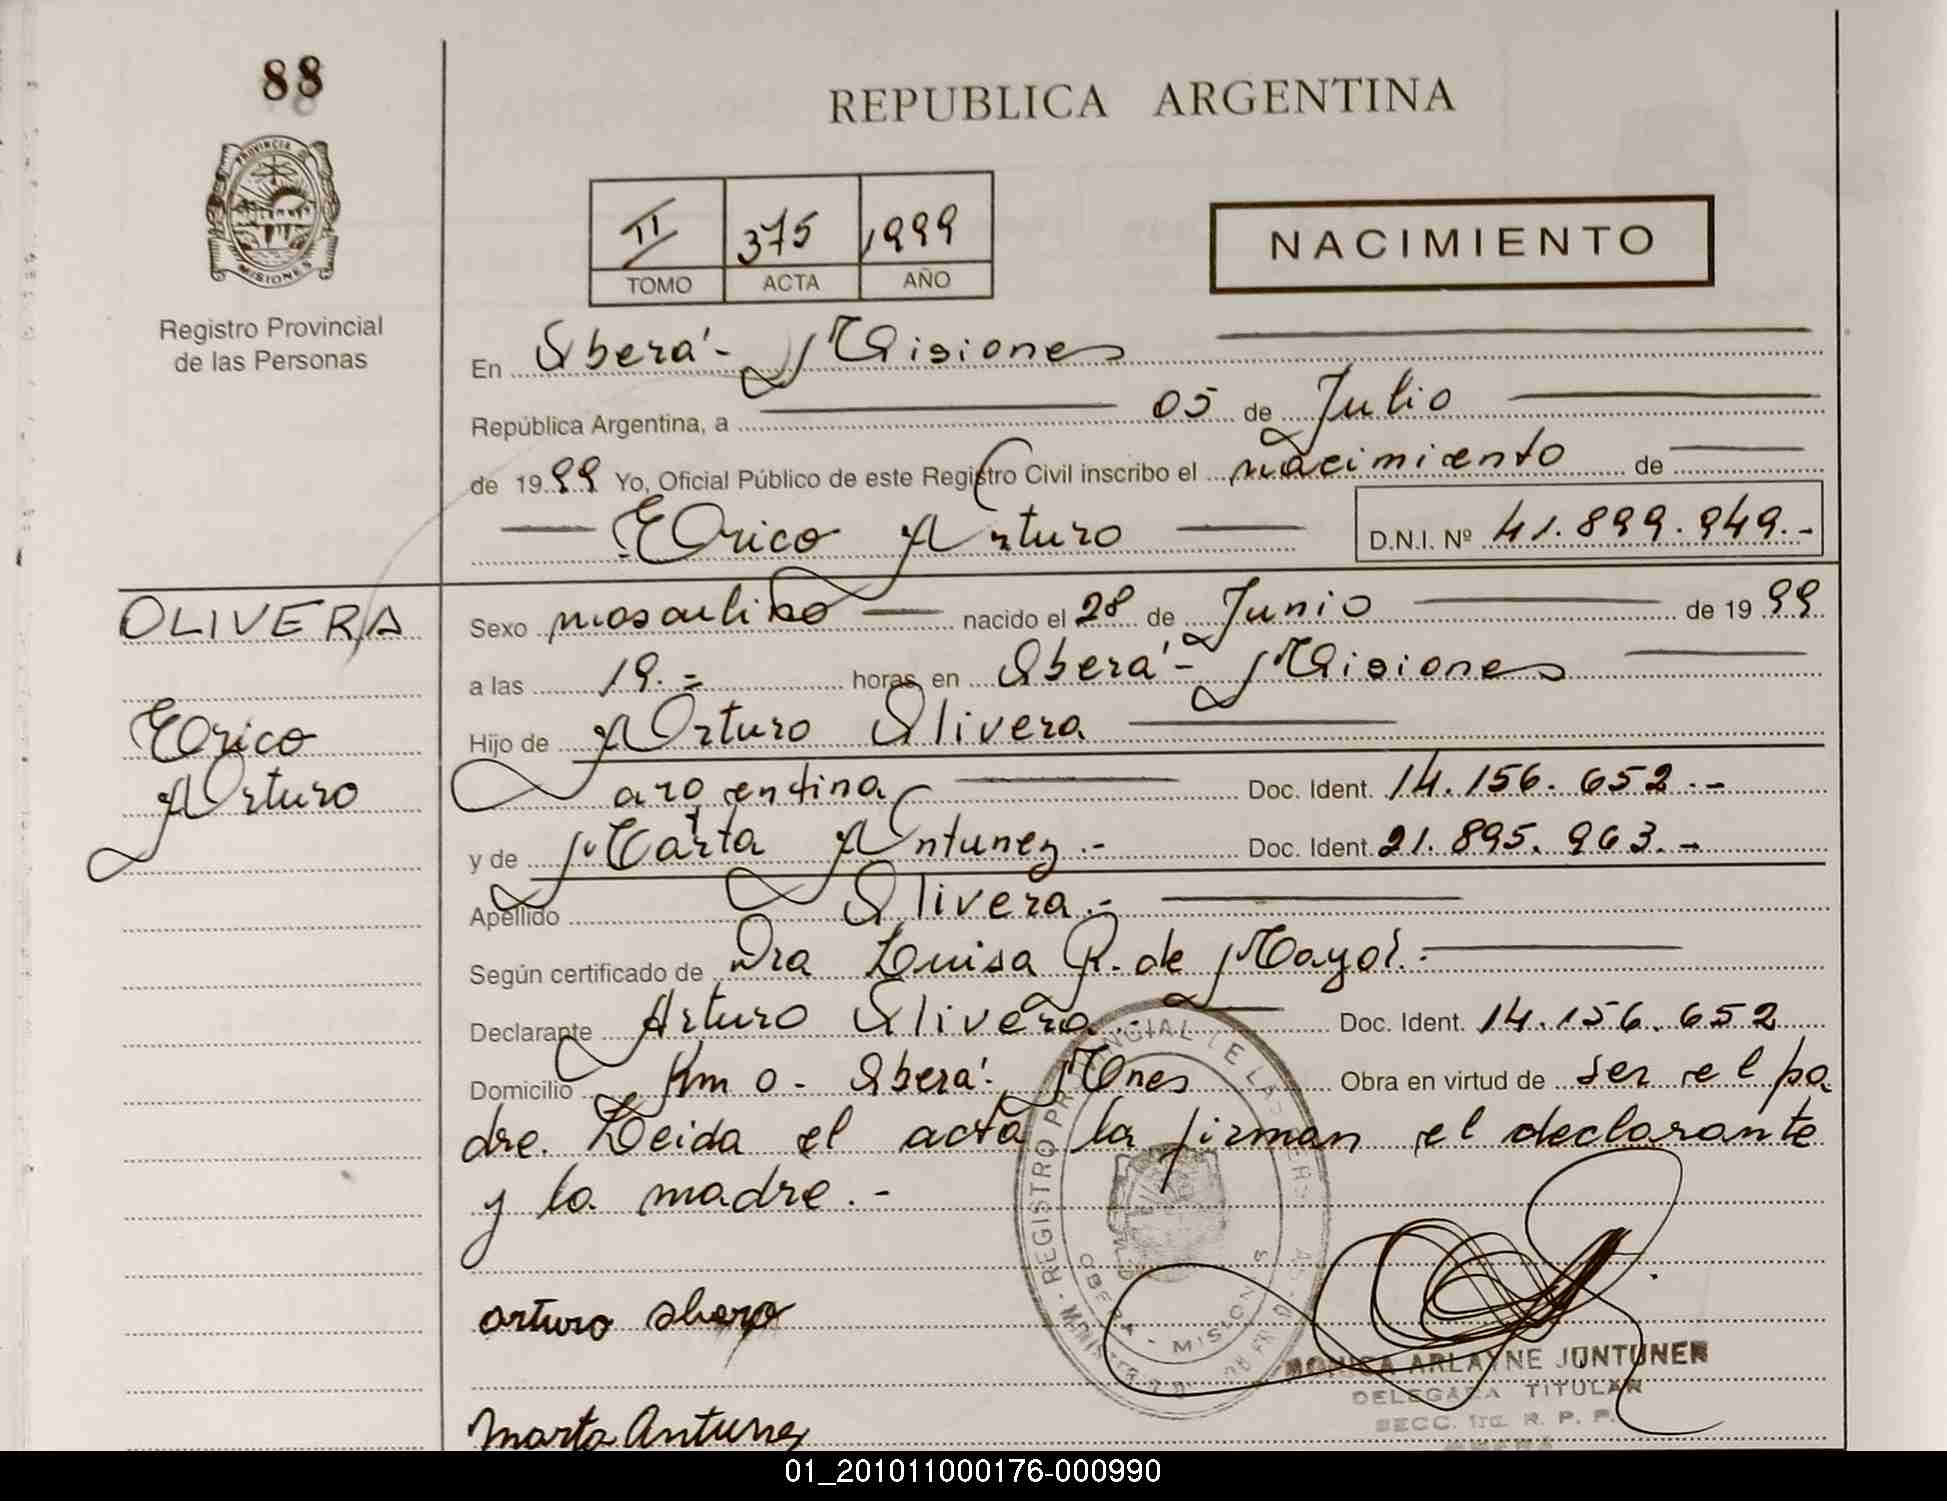 88
PROVINCIA DE
MISIONES
Registro Provincial
de las Personas
REPUBLICA ARGENTINA
II 375 1999
TOMO ACTA AÑO
NACIMIENTO
En Oberá - Misiones
República Argentina, a 05 de Julio
de 1999 Yo, Oficial Público de este Registro Civil inscribo el nacimiento de
Erico Arturo D.N.I. Nº 41.899.949.-
OLIVERA
Erico
Arturo
Sexo masculino nacido el 28 de Junio de 1999
a las 19.= horas en Oberá - Misiones
Hijo de Arturo Olivera
argentina Doc. Ident. 14.156.652.-
y de Marta Antunez.- Doc. Ident. 21.895.963.-
Apellido Olivera.-
Según certificado de Dra Luisa R. de Mayol.-
Declarante Arturo Olivera.- Doc. Ident. 14.156.652
Domicilio Km 0 - Oberá - Mnes Obra en virtud de ser el pa
dre. Leida el acta la firman el declarante
y la madre.-
REGISTRO PROVINCIAL DE LAS PERSONAS
OBERA - MISIONES
arturo
Marta Antunez
MONICA ARLAYNE JUNTUNEN
DELEGADA TITULAR
SECC. 1ra. R. P. P.
OBERA
01_201011000176-000990